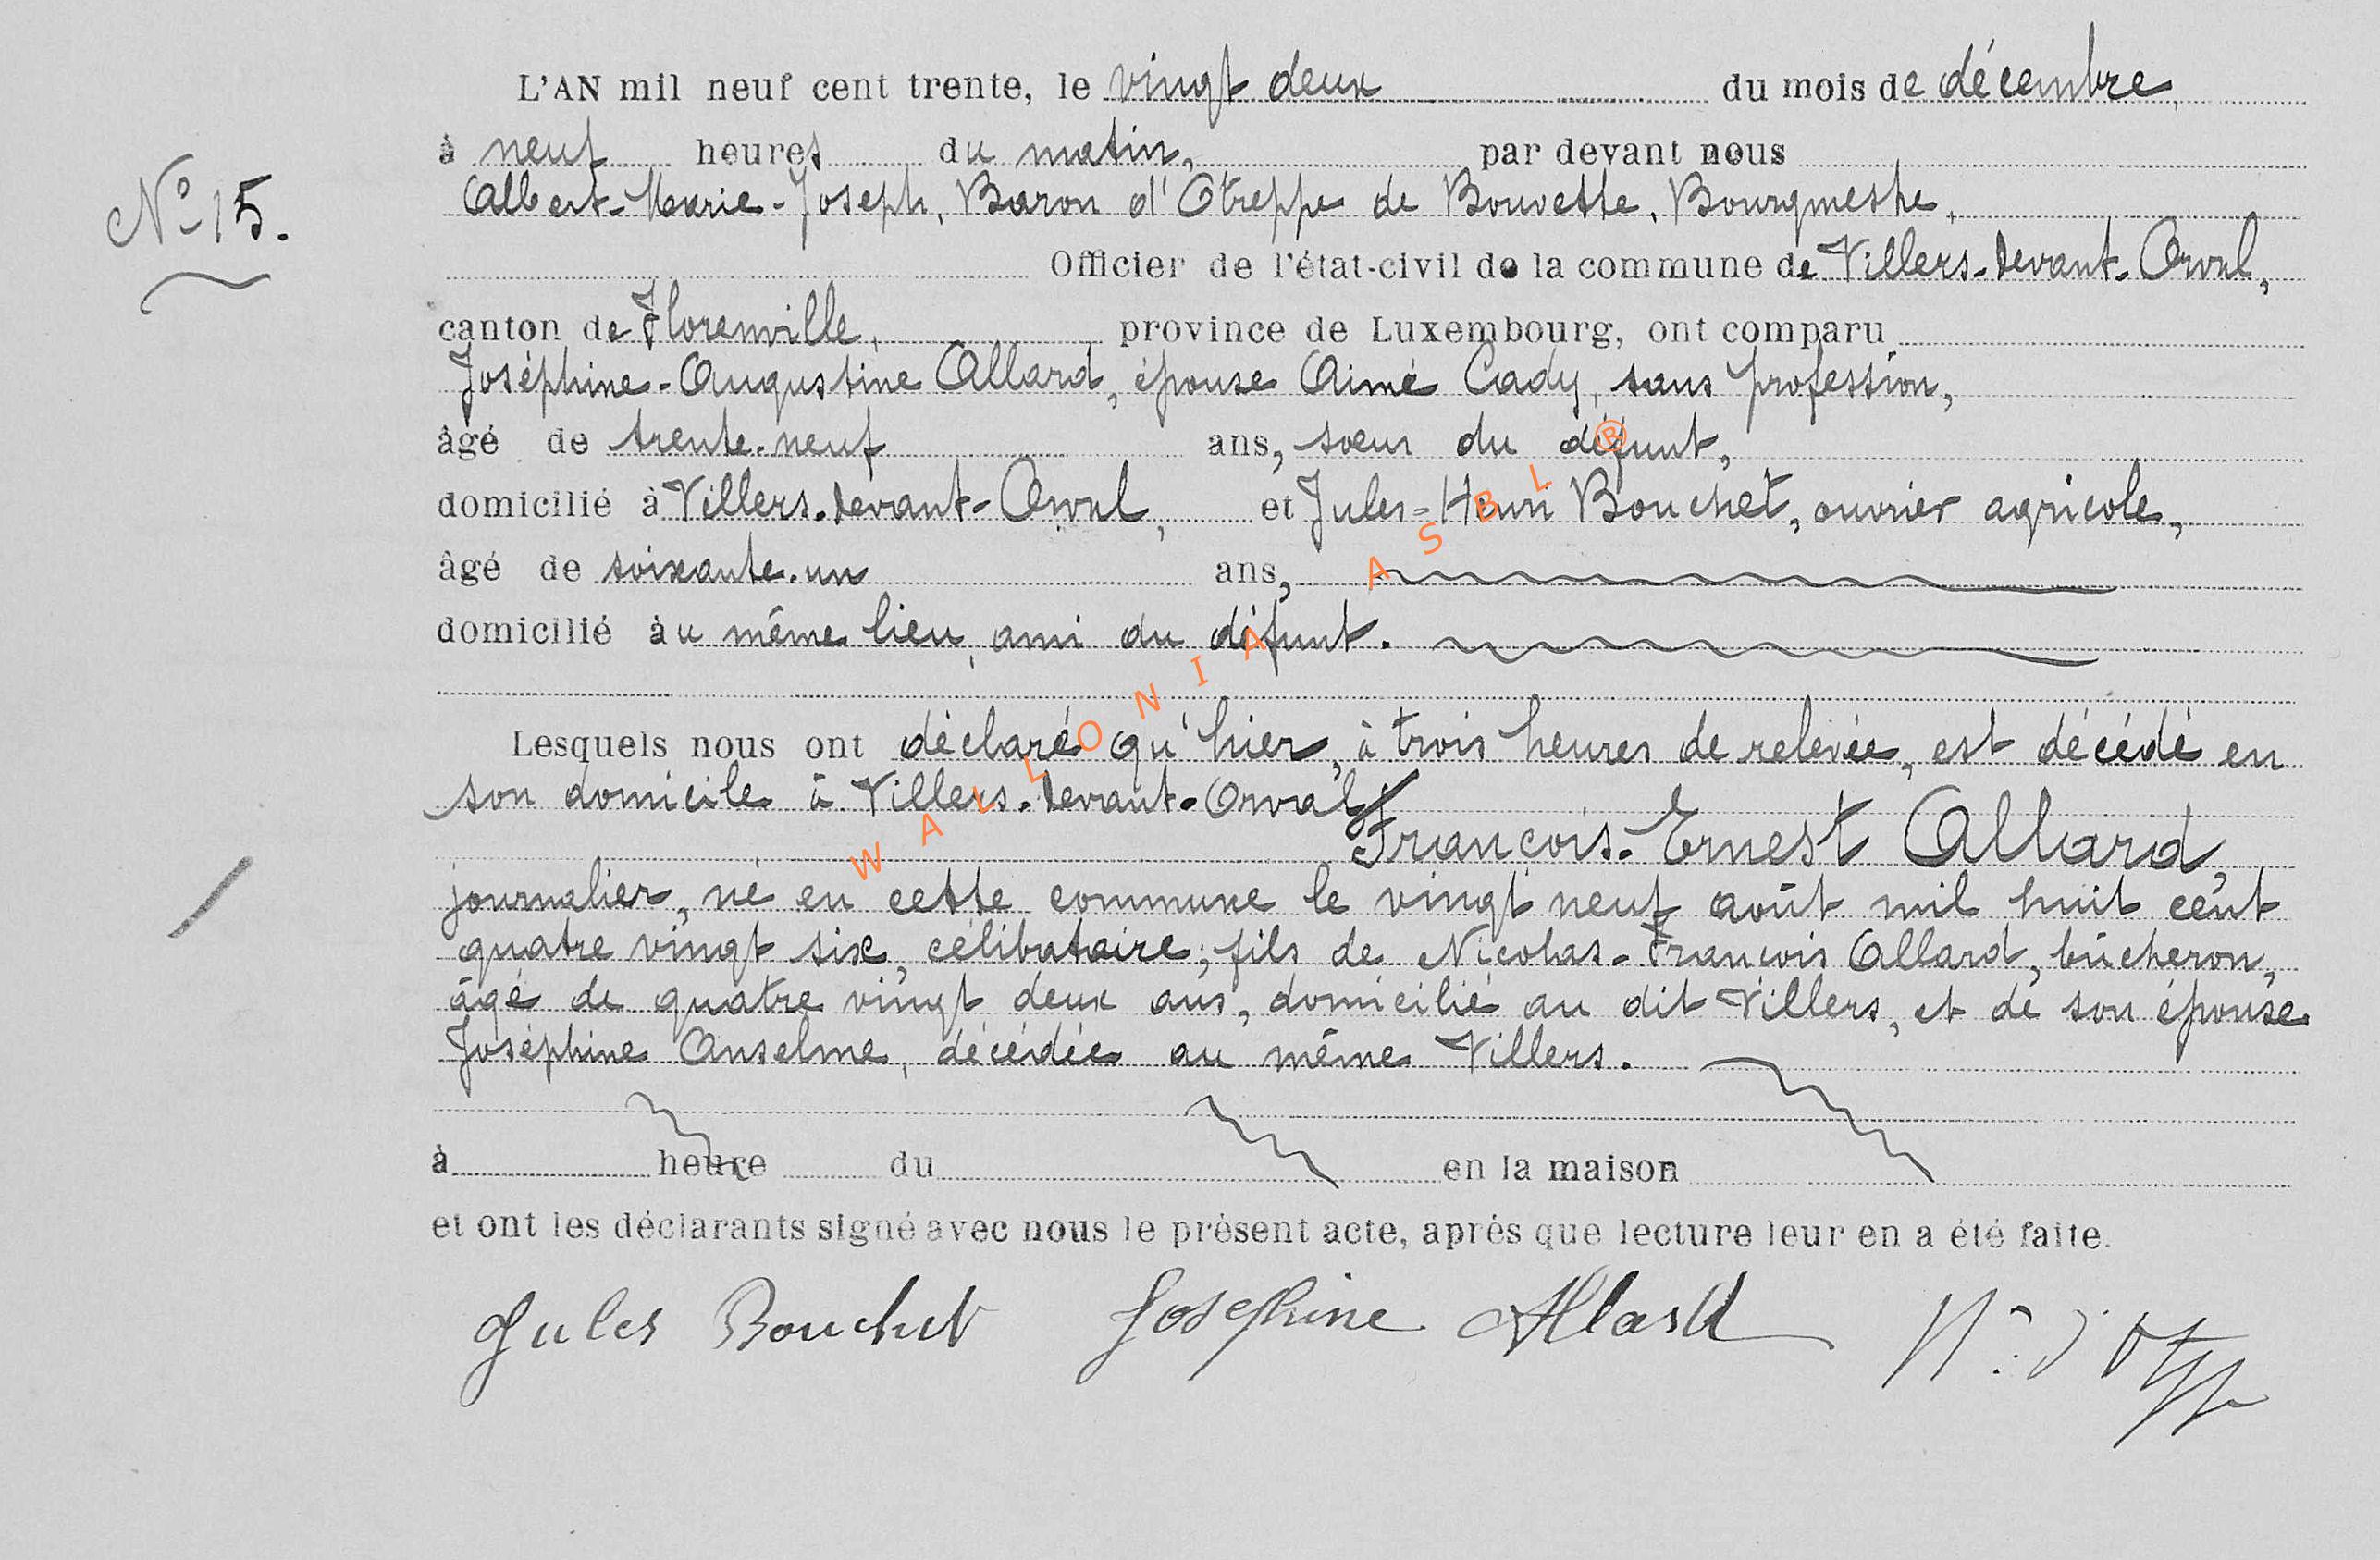 L'AN mil neuf cent trente, le vingt deux du mois de décembre,
à neuf heures du matin, par devant nous
N° 15.
Albert-Marie-Joseph, Baron d'Otreppe de Bouvette, Bourgmestre,
Officier de l'état-civil de la commune de Villers-devant-Orval,
canton de Florenville, province de Luxembourg, ont comparu
Joséphine-Augustine Allard, épouse Aimé Cady, sans profession,
âgé de trente-neuf ans, sœur du défunt,
domicilié à Villers-devant-Orval, et Jules-Henri Bouchet, ouvrier agricole,
âgé de soixante-un ans,
domicilié au même lieu, ami du défunt.
Lesquels nous ont déclaré qu'hier, à trois heures de relevée, est décédé en
son domicile à Villers-devant-Orval,
François-Ernest Allard,
journalier, né en cette commune le vingt neuf août mil huit cent
quatre vingt six, célibataire; fils de Nicolas-François Allard, bûcheron,
âgé de quatre vingt deux ans, domicilié au dit Villers, et de son épouse
Joséphine Anselme, décédée au même Villers.
à heure du en la maison
et ont les déclarants signé avec nous le présent acte, après que lecture leur en a été faite.
Jules Bouchet Josephine Allard
WALLONIA ASBL ®